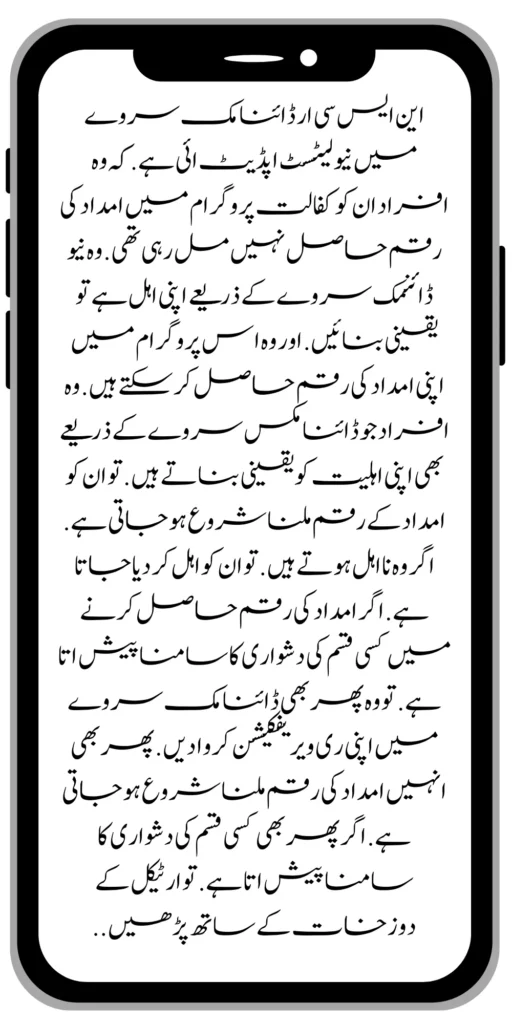 این ایس سی ار ڈائنامک سروے
میں نیو لیٹسٹ اپڈیٹ ائی ہے. کہ وہ
افراد ان کو کفالت پروگرام میں امداد کی
رقم حاصل نہیں مل رہی تھی. وہ نیو
ڈائنمک سروے کے ذریعے اپنی اہل ہے تو
یقینی بنائیں. اور وہ اس پروگرام میں
اپنی امداد کی رقم حاصل کر سکتے ہیں. وہ
افراد جو ڈائنامکس سروے کے ذریعے
بھی اپنی اہلیت کو یقینی بناتے ہیں. تو ان کو
امداد کے رقم ملنا شروع ہو جاتی ہے.
اگر وہ نااہل ہوتے ہیں. تو ان کو اہل کر دیا جاتا
ہے. اگر امداد کی رقم حاصل کرنے
میں کسی قسم کی دشواری کا سامنا پیش اتا
ہے. تو وہ پھر بھی ڈائنامک سروے
میں اپنی ری ویریفکیشن کروا دیں. پھر بھی
انہیں امداد کی رقم ملنا شروع ہو جاتی
ہے. اگر پھر بھی کسی قسم کی دشواری کا
سامنا پیش اتا ہے. تو ارٹیکل کے
دوزخات کے ساتھ پڑھیں..